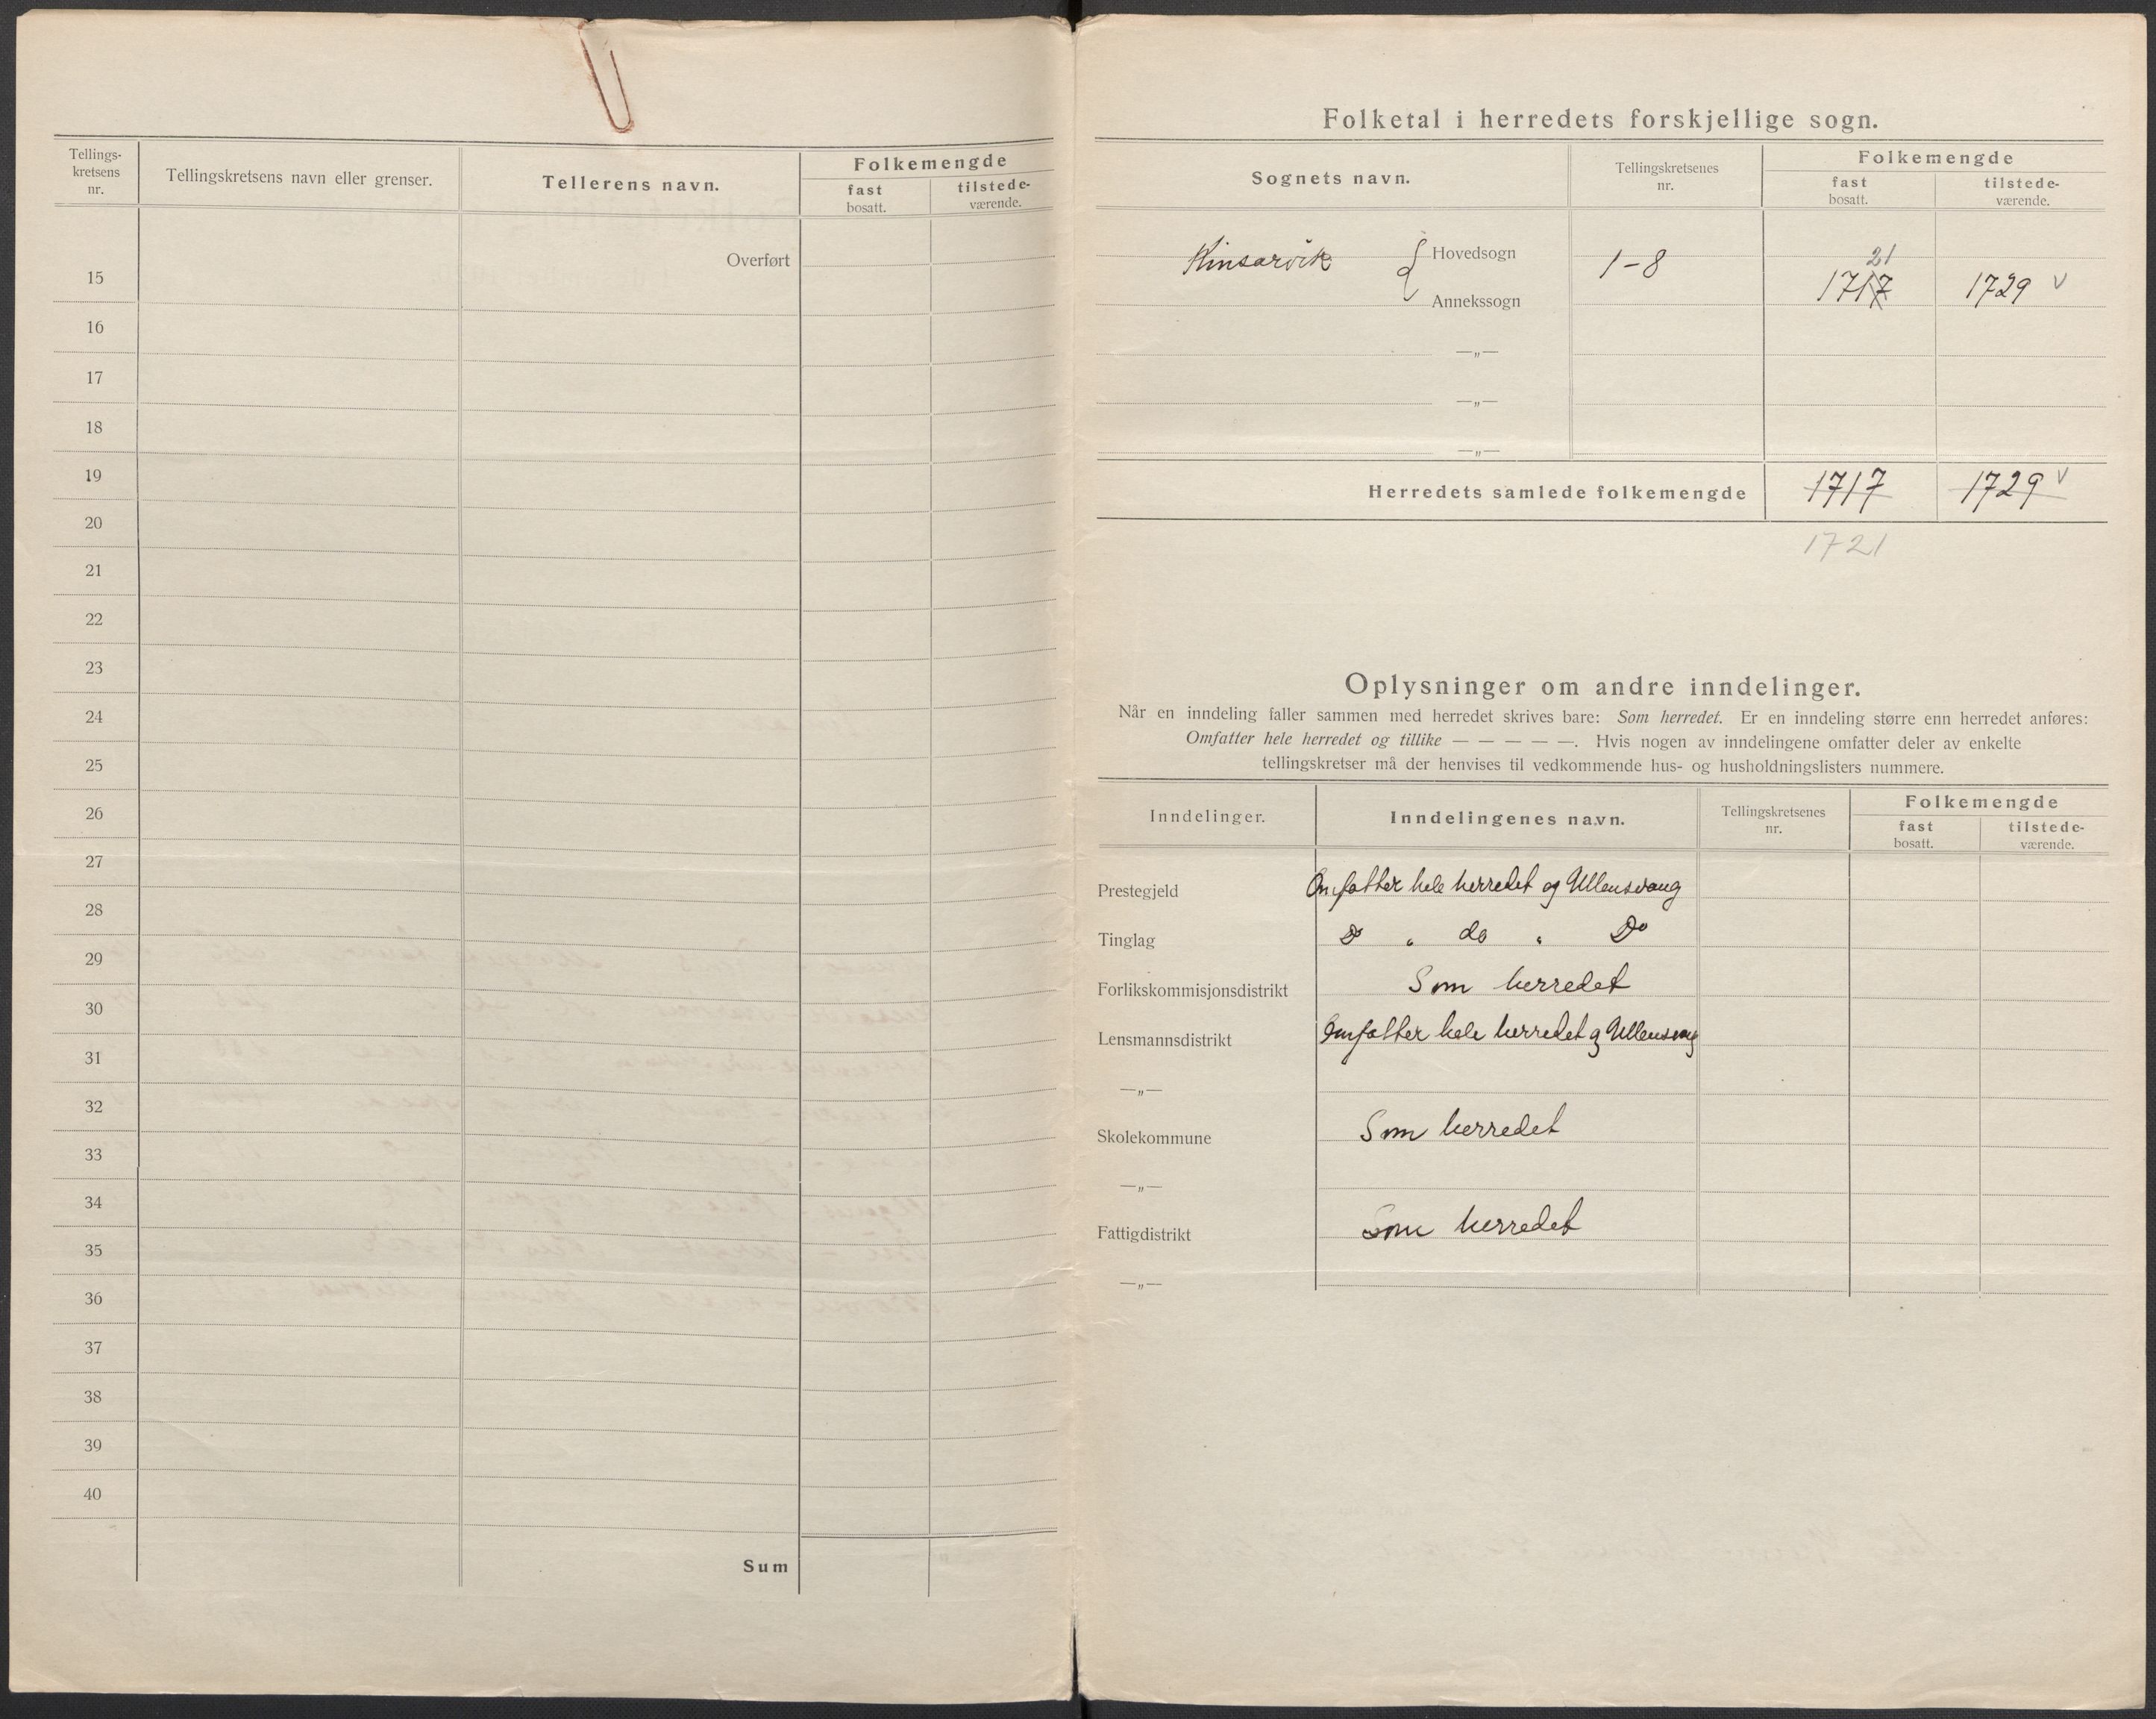 Tellings-
kretsens
nr.
Tellingskretsens navn eller grenser.
Tellerens navn.
Folkemengde
fast
bosatt.
tilstede-
værende.
Overført
15
16
17
18
19
20
21
22
23
24
25
26
27
28
29
30
31
32
33
34
35
36
37
38
39
40
Sum
Folketal i herredets forskjellige sogn.
Sognets navn.
Tellingskretsenes
nr.
Folkemengde
fast
bosatt.
tilstede-
værende.
Kinsarvik { Hovedsogn 1-8 21
Annekssogn 1717 1729 v
—„—
—„—
—„—
Herredets samlede folkemengde 1717 1729 v
1721
Oplysninger om andre inndelinger.
Når en inndeling faller sammen med herredet skrives bare: Som herredet. Er en inndeling større enn herredet anføres:
Omfatter hele herredet og tillike — — — — —. Hvis nogen av inndelingene omfatter deler av enkelte
tellingskretser må der henvises til vedkommende hus- og husholdningslisters nummere.
Inndelinger.
Inndelingenes navn.
Tellingskretsenes
nr.
Folkemengde
fast
bosatt.
tilstede-
værende.
Prestegjeld Omfatter hele herredet og Ullensvang
Tinglag Do " do " Do
Forlikskommisjonsdistrikt Som herredet
Lensmannsdistrikt Omfatter hele herredet og Ullensvang
—„—
Skolekommune Som herredet
—„—
Fattigdistrikt Som herredet
—„—